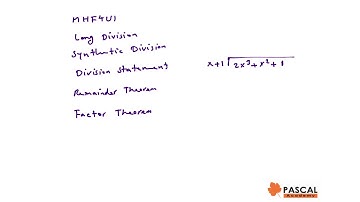 MHF4U1
Long Division
Synthetic Division
Division Statement
x+1 2x³+x²+1
Remainder Theorem
Factor Theorem
PASCAL
Academy